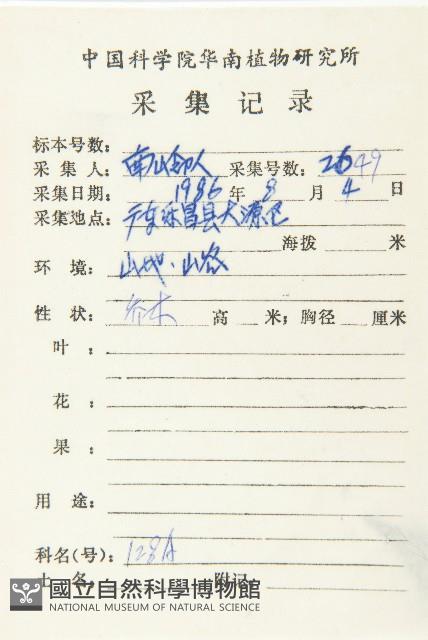 中国科学院华南植物研究所
采集记录
标本号数：
采集人：南岭队 采集号数：2649
采集日期：1986年8月4日
采集地点：广东乐昌县大源
海拨 米
环境：山地·山谷
性状：乔木 高 米；胸径 厘米
叶：
花：
果：
用途：
科名(号)：128A
土名： 附记：
國立自然科學博物館
NATIONAL MUSEUM OF NATURAL SCIENCE